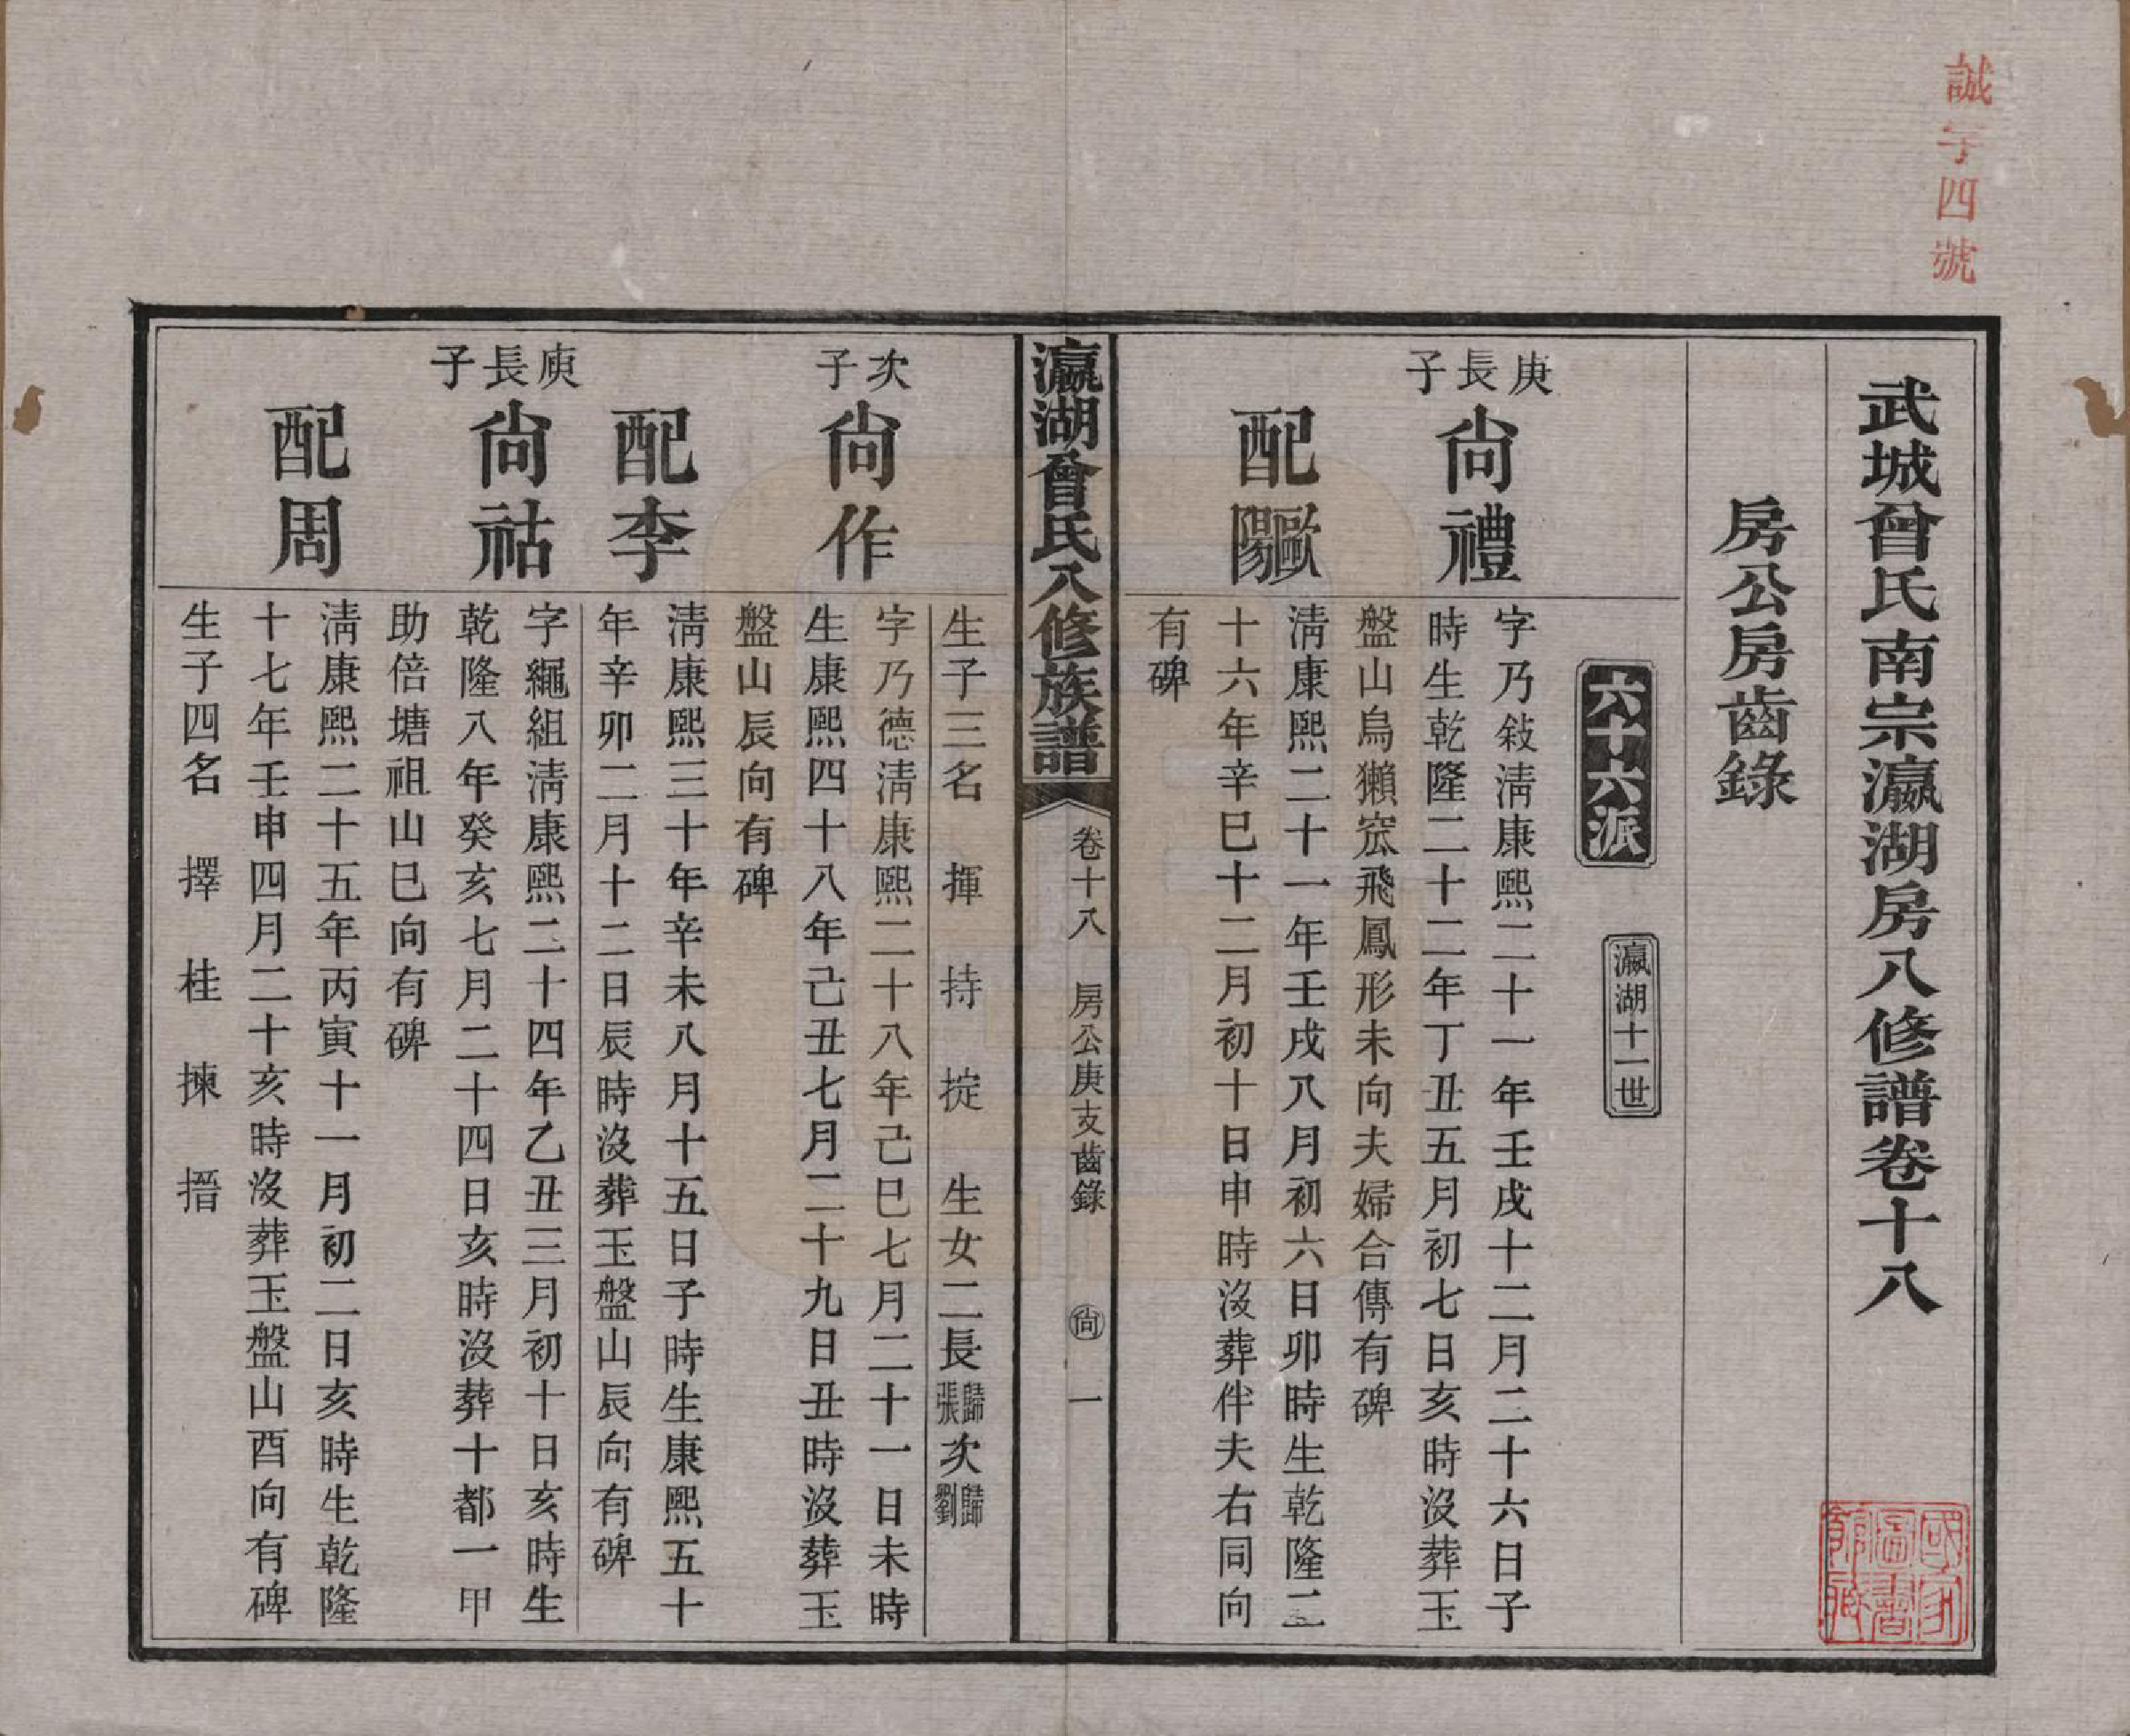 誠字四號
武城曾氏南宗瀛湖房八修譜卷十八
房公房齒錄
六十六派
瀛湖十一世
庚長子
尙禮
字乃敍淸康熙二十一年壬戌十二月二十六日子
時生乾隆二十二年丁丑五月初七日亥時沒葬玉
盤山烏獺窊飛鳳形未向夫婦合傳有碑
配歐陽
淸康熙二十一年壬戌八月初六日卯時生乾隆二
十六年辛巳十二月初十日申時沒葬伴夫右同向
有碑
瀛湖曾氏八修族譜
卷十八
房公庚支齒錄
尙
一
生子三名 揮 持 掟 生女二長歸張次歸劉
次子
尙作
字乃德淸康熙二十八年己巳七月二十一日未時
生康熙四十八年己丑七月二十九日丑時沒葬玉
盤山辰向有碑
配李
淸康熙三十年辛未八月十五日子時生康熙五十
年辛卯二月十二日辰時沒葬玉盤山辰向有碑
庾長子
尙祜
字繩組淸康熙二十四年乙丑三月初十日亥時生
乾隆八年癸亥七月二十四日亥時沒葬十都一甲
助倍塘祖山巳向有碑
配周
淸康熙二十五年丙寅十一月初二日亥時生乾隆
十七年壬申四月二十亥時沒葬玉盤山酉向有碑
生子四名 擇 桂 揀 搢
國家圖書館藏